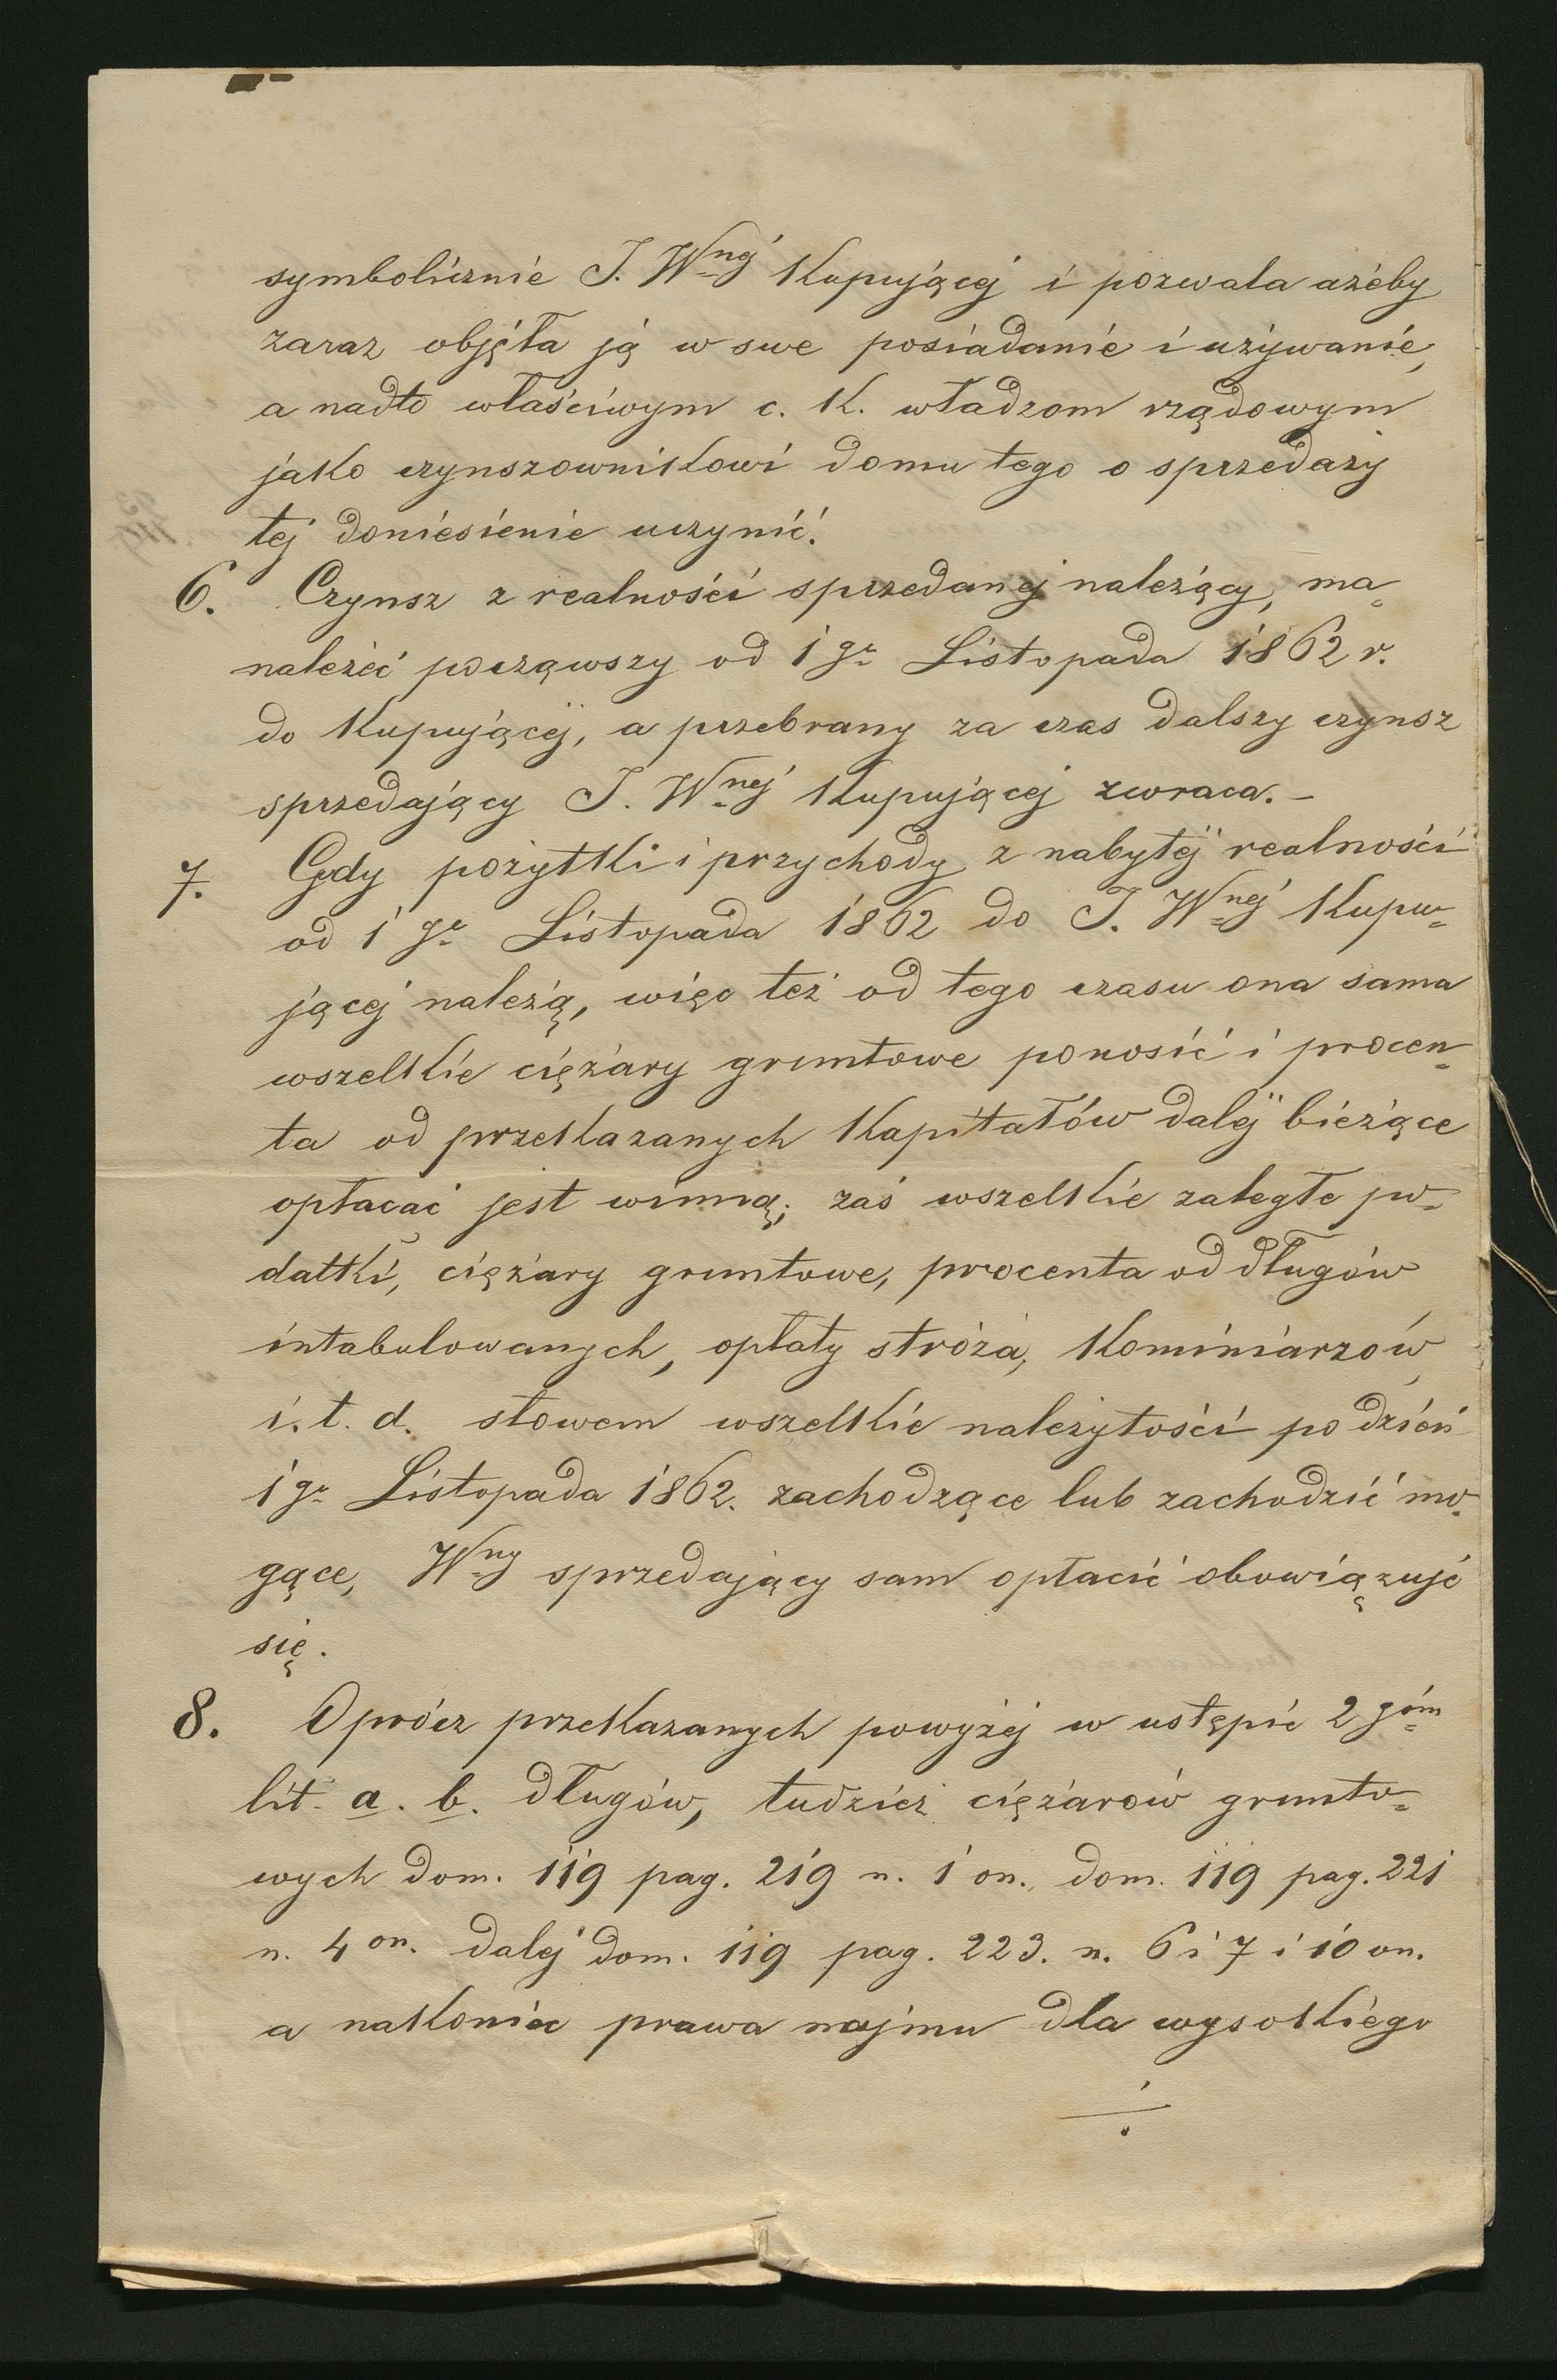 symbolicznie J. Wnéj Kupującéj i pozwala ażeby
zaraz objęła ją w swe posiadanie i używanie,
a nadto właściwym c. K. władzom rządowym
jako czynszownikowi domu tego o sprzedaży
téj doniesienie uczynić.
6. Czynsz z realności sprzedanéj należący, ma
należeć począwszy od 1go Listopada 1862 r.
do Kupującéj, a przebrany za czas dalszy czynsz
sprzedający J. Wnéj Kupującéj zwraca. –
7. Gdy pożytki i przychody z nabytéj realności
od 1go Listopada 1862 do J. Wnéj Kupu=
jącéj należą, więc też od tego czasu ona sama
wszelkie ciężary gruntowe ponosić i procen=
ta od przekazanych Kapitałów daléj bieżące
opłacać jest winną; zaś wszelkie zaległe po=
datki, ciężary gruntowe, procenta od długów
intabulowanych, opłaty stróża, Kominiarzów
i. t. d. słowem wszelkie należytości po dzień
1go Listopada 1862. zachodzące lub zachodzić mo=
gące, Wny sprzedający sam opłacić obowiązuje
się.
8. Oprócz przekazanych powyżéj w ustępie 2góm
lit. a. b. długów, tudzież ciężarów grunto=
wych dom. 119 pag. 219 n. 1 on. dom. 119 pag. 221
n. 4 on. daléj dom. 119 pag. 223. n. 6 i 7 i 10 on.
a nakoniec prawa najmu dla wysokiego
./.